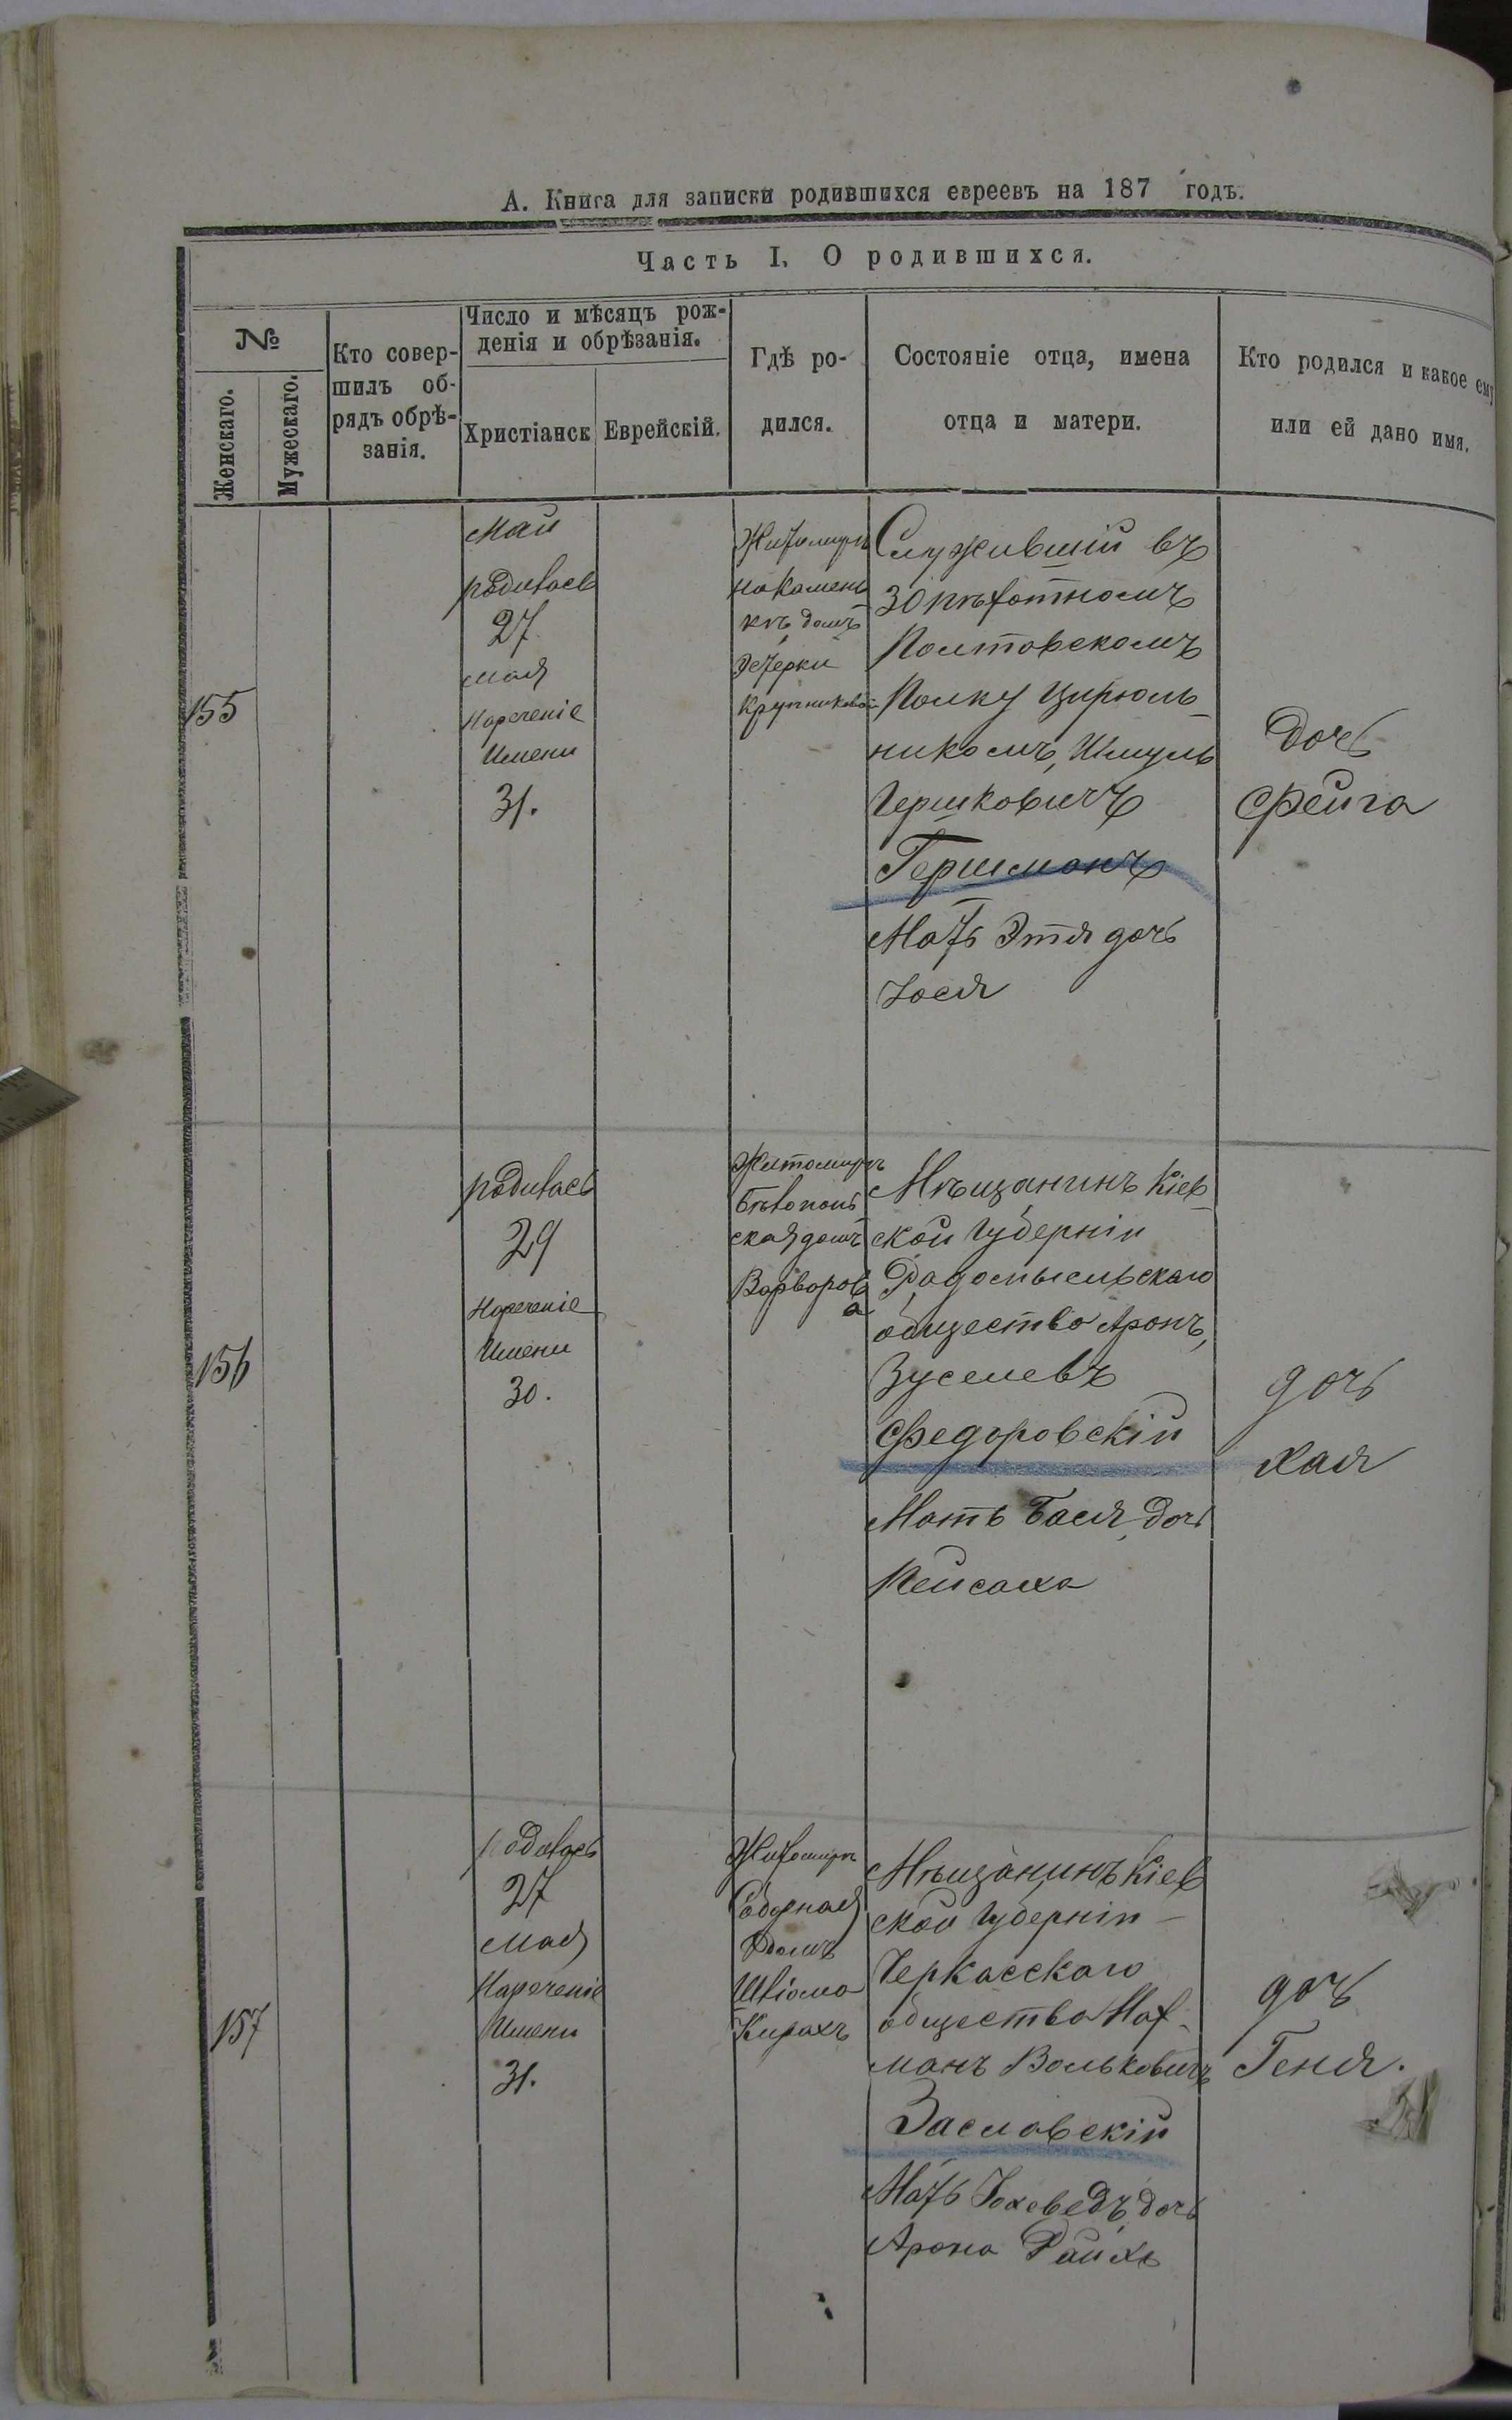 А. Книга для записки родившихся евреевъ на 187 годъ.
Часть I. О родившихся.
№
Женскаго.
Мужескаго.
Кто совер-
шилъ об-
рядъ обрѣ-
занія.
Число и мѣсяцъ рож-
денія и обрѣзанія.
Христіанск
Еврейскій.
Гдѣ ро-
дился.
Состояніе отца, имена
отца и матери.
Кто родился и какое ему
или ей дано имя.
155
Май
родилась
27
мая
Нареченіе
Имени
31.
Житомиръ
на Камень
кѣ домъ
Эстерки
Крупниковой
Служившій въ
30 пѣхотномъ
Полтавскомъ
Полку Цирюль-
никомъ, Шмуль
Гершковичъ
Гершманъ
Мать Этя дочь
Іося
Дочь
Фейга
156
родилась
29
Нареченіе
Имени
30.
Житомиръ
Бѣлополь
ская домъ
Варваров
а
Мѣщанинъ Кіев-
ской Губерніи
Радомысльскаго
общества Аронъ,
Зуселевъ
Федоровскій
Мать Бася, дочь
Пейсаха
дочь
Хая
157
родилась
27
мая
Нареченіе
Имени
31.
Житомиръ
домъ
Мѣщанинъ Кіев
ской Губерніи
Черкасскаго
общества Нах-
манъ Вольковичъ
Заславскій
Мать Іохеведъ дочь
Арона
дочь
Геня.